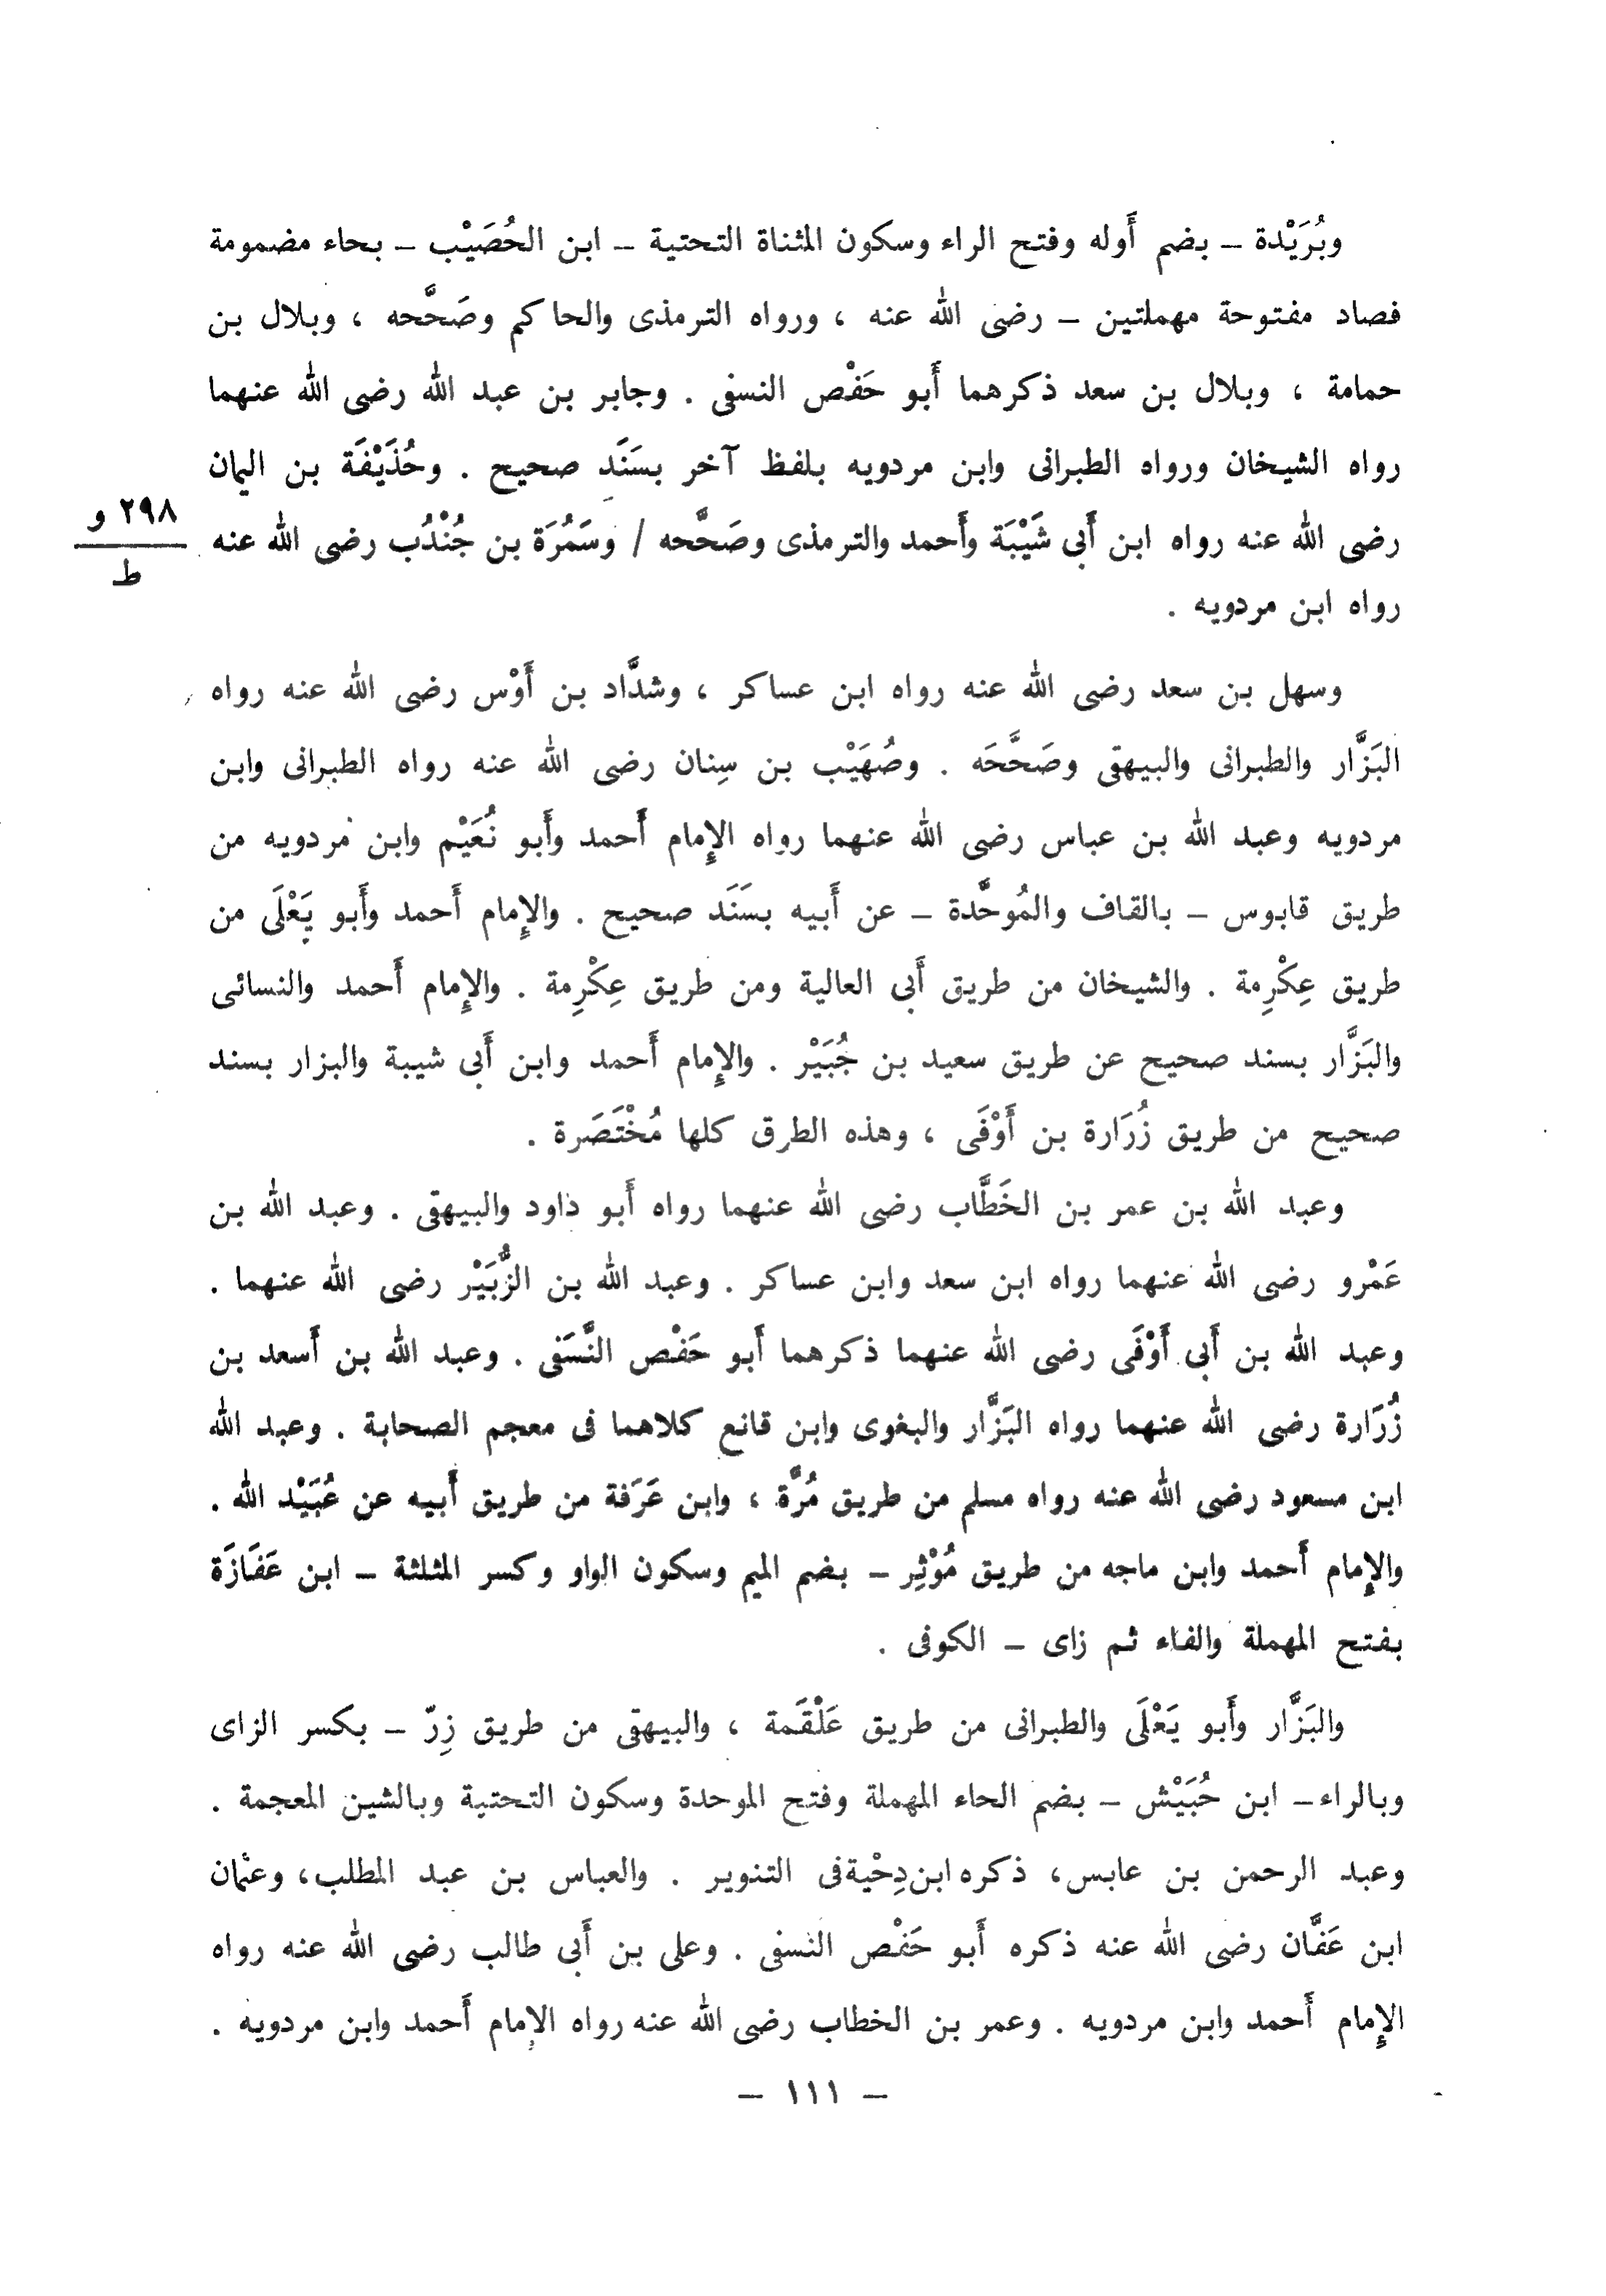 وبُرَيْدة – بضم أَوله وفتح الراء وسكون المثناة التحتية – ابن الحُصَيْب – بحاء مضمومة
فصاد مفتوحة مهملتين – رضى الله عنه ، ورواه الترمذى والحاكم وصَحَّحه ، وبلال بن
حمامة ، وبلال بن سعد ذكرهما أَبو حَفْص النسفى . وجابر بن عبد الله رضى الله عنهما
رواه الشيخان ورواه الطبرانى وابن مردويه بلفظ آخر بسَنَد صحيح . وحُذَيْفَة بن اليمان
رضى الله عنه رواه ابن أَبى شَيْبَة وأَحمد والترمذى وصَحَّحه / وسَمُرَة بن جُنْدُب رضى الله عنه
٢٩٨ و
ط
رواه ابن مردويه .
وسهل بن سعد رضى الله عنه رواه ابن عساكر ، وشدَّاد بن أَوْس رضى الله عنه رواه
البَزَّار والطبرانى والبيهقى وصَحَّحَه . وصُهَيْب بن سِنان رضى الله عنه رواه الطبرانى وابن
مردويه وعبد الله بن عباس رضى الله عنهما رواه الإِمام أَحمد وأَبو نُعَيْم وابن مردويه من
طريق قابوس – بالقاف والمُوحَّدة – عن أَبيه بسَنَد صحيح . والإِمام أَحمد وأَبو يَعْلَى من
طريق عِكْرِمة . والشيخان من طريق أَبى العالية ومن طريق عِكْرِمة . والإِمام أَحمد والنسائى
والبَزَّار بسند صحيح عن طريق سعيد بن جُبَيْر . والإِمام أَحمد وابن أَبى شيبة والبزار بسند
صحيح من طريق زُرَارة بن أَوْفَى ، وهذه الطرق كلها مُخْتَصَرة .
وعبد الله بن عمر بن الخَطَّاب رضى الله عنهما رواه أَبو داود والبيهقى . وعبد الله بن
عَمْرو رضى الله عنهما رواه ابن سعد وابن عساكر . وعبد الله بن الزُّبَيْر رضى الله عنهما .
وعبد الله بن أَبى أَوْفَى رضى الله عنهما ذكرهما أَبو حَفْص النَّسَفى . وعبد الله بن أَسعد بن
زُرَارة رضى الله عنهما رواه البَزَّار والبغوى وابن قانع كلاهما فى معجم الصحابة . وعبد الله
ابن مسعود رضى الله عنه رواه مسلم من طريق مُرَّة ، وابن عَرَفة من طريق أَبيه عن عُبَيْد الله .
والإِمام أَحمد وابن ماجه من طريق مُوْثِر – بضم الميم وسكون الواو وكسر المثلثة – ابن عَفَازَة
بفتح المهملة والفاء ثم زاى – الكوفى .
والبَزَّار وأَبو يَعْلَى والطبرانى من طريق عَلْقَمة ، والبيهقى من طريق زِرّ – بكسر الزاى
وبالراء – ابن حُبَيْش – بضم الحاء المهملة وفتح الموحدة وسكون التحتية وبالشين المعجمة .
وعبد الرحمن بن عابس، ذكره ابن دِحْية فى التنوير . والعباس بن عبد المطلب، وعثمان
ابن عَفَّان رضى الله عنه ذكره أَبو حَفْص النسفى . وعلى بن أَبى طالب رضى الله عنه رواه
الإِمام أَحمد وابن مردويه . وعمر بن الخطاب رضى الله عنه رواه الإِمام أَحمد وابن مردويه .
– ١١١ –